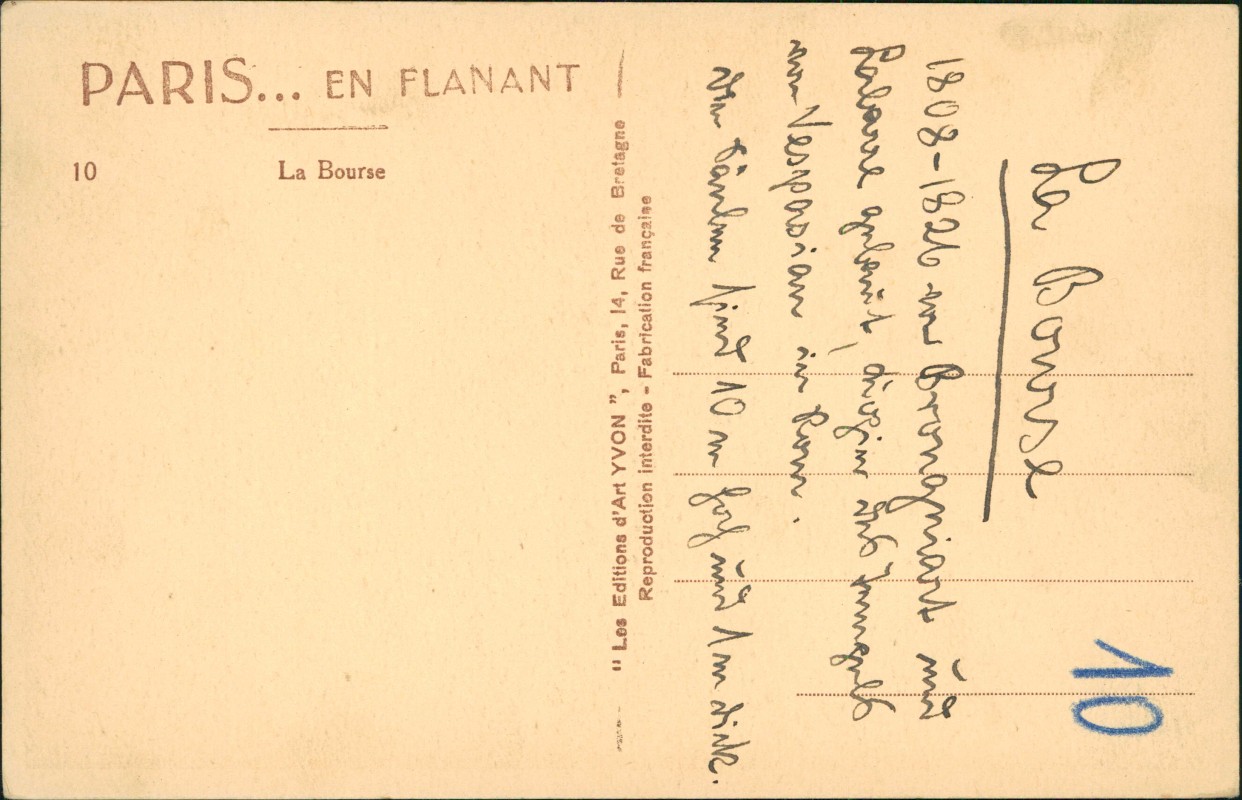 PARIS... EN FLANANT
10 La Bourse
" Les Editions d'Art YVON ", Paris, 14, Rue de Bretagne
Reproduction interdite - Fabrication française
La Bourse
1808-1826 von Brongniart und
Labarre gebaut, des Tempels
von Vespasian in Rom.
Die Säulen sind 10 m hoch und 1 m dick.
10